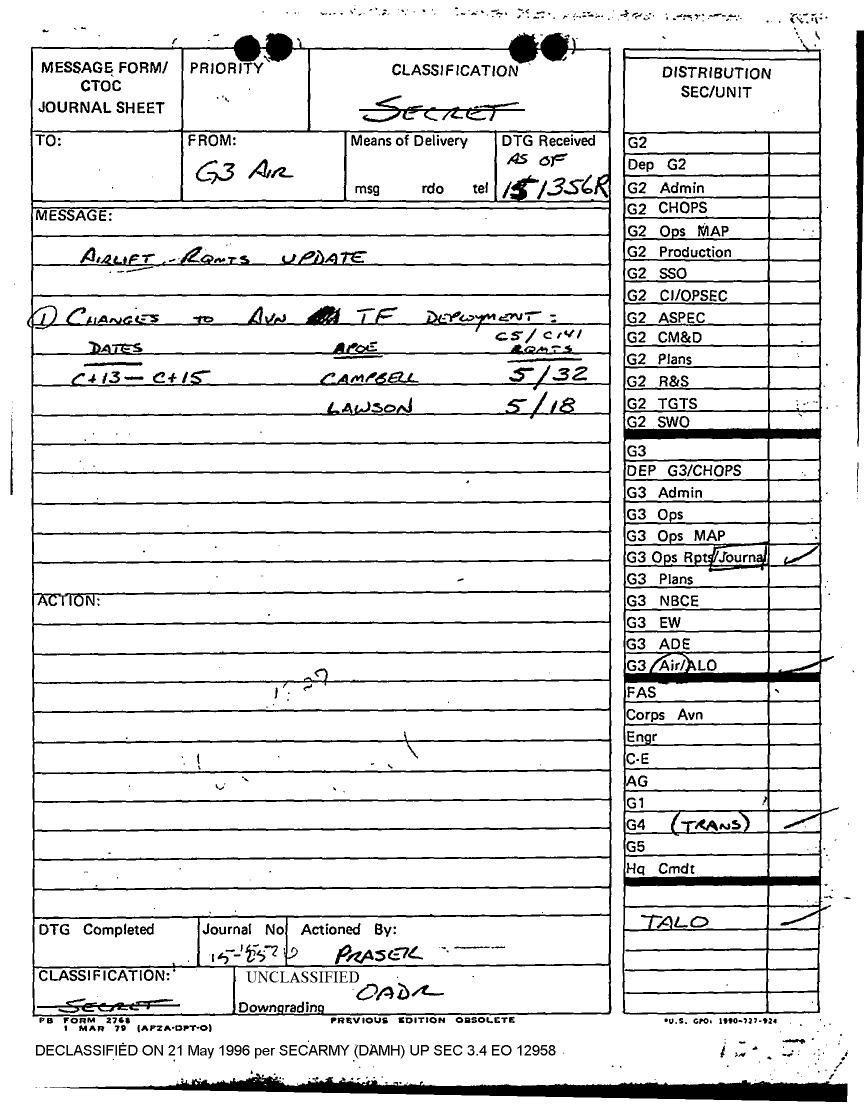 MESSAGE FORM/
CTOC
JOURNAL SHEET
PRIORITY
CLASSIFICATION
SECRET
TO:
FROM:
G3 AIR
Means of Delivery
msg rdo tel
DTG Received
AS OF
151356R
MESSAGE:
AIRLIFT RQMTS UPDATE
① CHANGES TO AVN TF DEPLOYMENT:
C5/C141
DATES APOE RQMTS
C+13 — C+15 CAMPBELL 5/32
LAWSON 5/18
ACTION:
DTG Completed
Journal No
Actioned By:
CLASSIFICATION:
SECRET
UNCLASSIFIED
OADR
Downgrading
FB FORM 2768
1 MAR 79 (AFZA-DPT-O)
PREVIOUS EDITION OBSOLETE
DECLASSIFIED ON 21 May 1996 per SECARMY (DAMH) UP SEC 3.4 EO 12958
DISTRIBUTION
SEC/UNIT
G2
Dep G2
G2 Admin
G2 CHOPS
G2 Ops MAP
G2 Production
G2 SSO
G2 CI/OPSEC
G2 ASPEC
G2 CM&D
G2 Plans
G2 R&S
G2 TGTS
G2 SWO
G3
DEP G3/CHOPS
G3 Admin
G3 Ops
G3 Ops MAP
G3 Ops Rpts/Journal
G3 Plans
G3 NBCE
G3 EW
G3 ADE
G3 Air/ALO
FAS
Corps Avn
Engr
C-E
AG
G1
G4 (TRANS)
G5
Hq Cmdt
TALO
*U.S. GPO: 1990-727-924